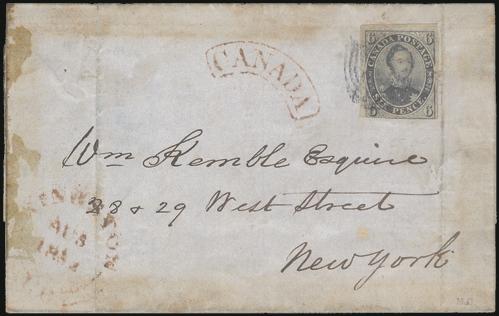 CANADA
6 CANADA POSTAGE 6
6 SIX PENCE 6
Wm Kemble Esquire
28 & 29 West Street
New York